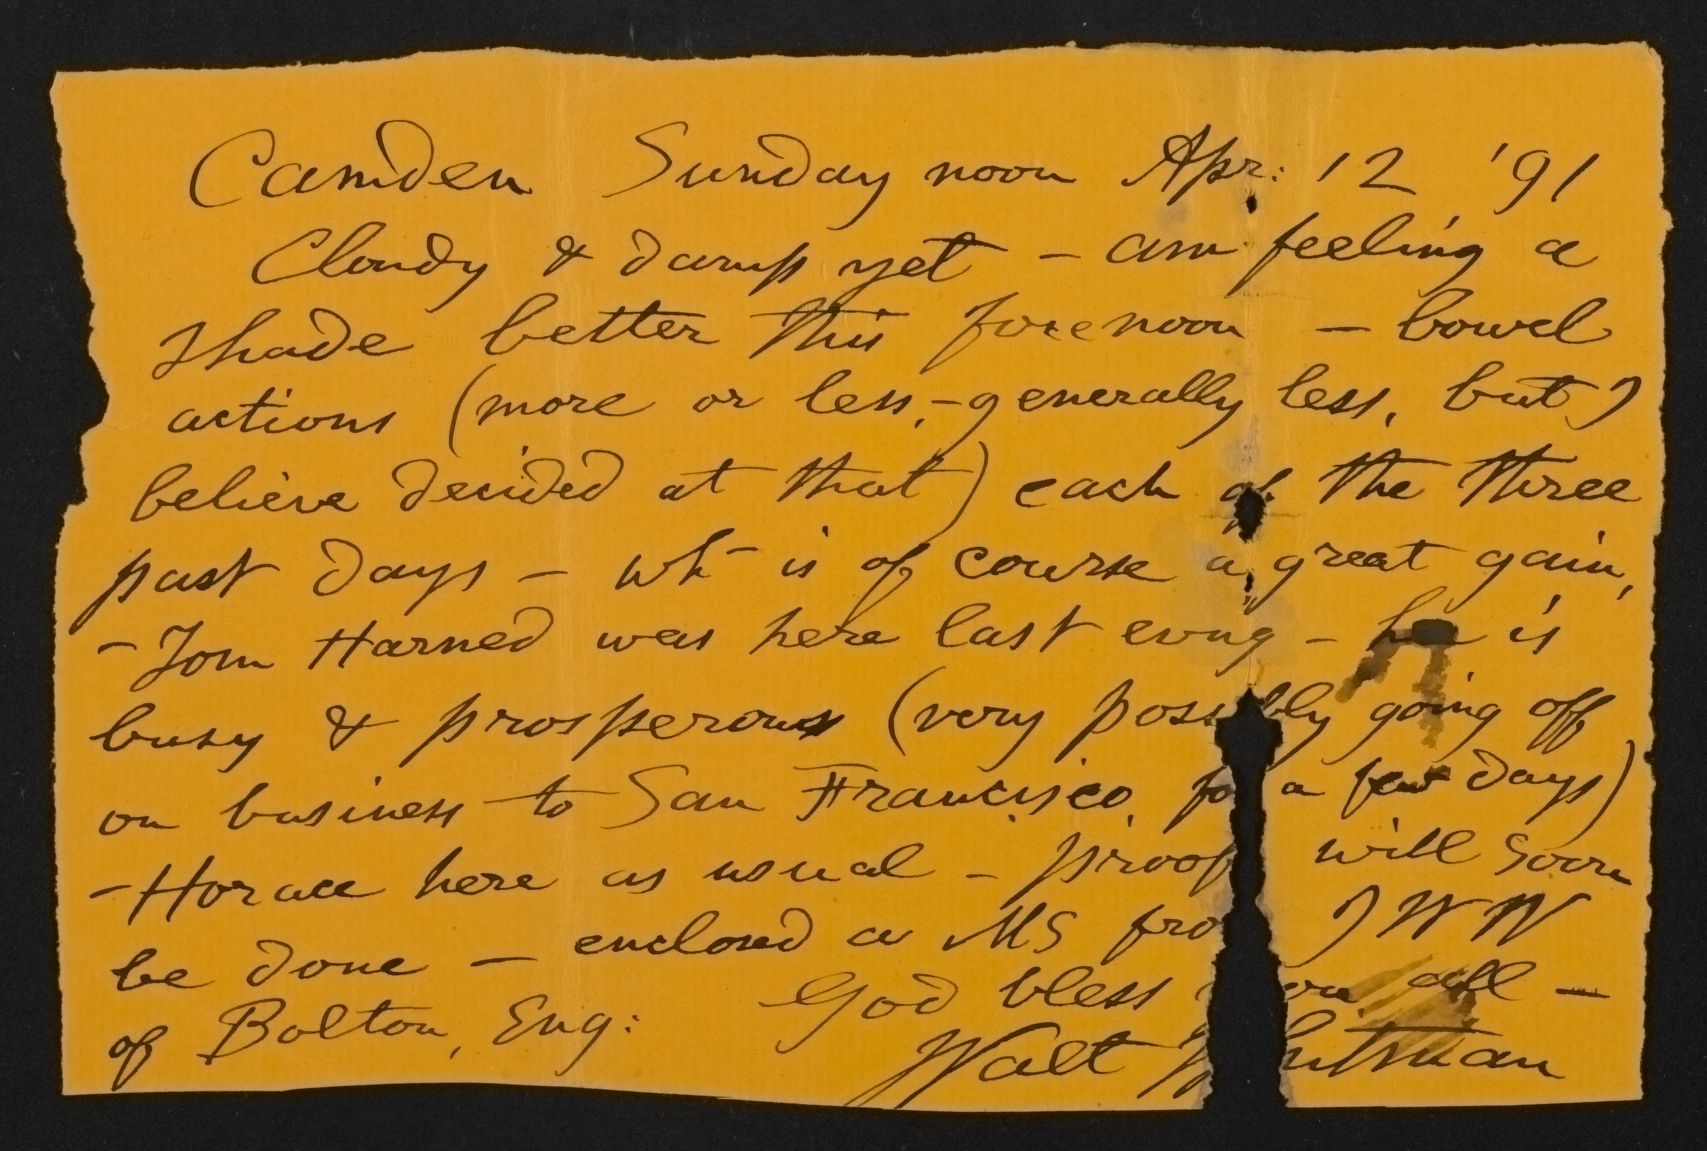 Camden Sunday noon Apr: 12 '91
Cloudy & damp yet – am feeling a
shade better this forenoon – bowel
actions (more or less, – generally less, but I
believe decided at that) each of the three
past days – wh– is of course a great gain,
– Tom Harned was here last evn'g – he is
busy & prosperous (very possibly going off
on business to San Francisco for a few days)
– Horace here as usual – proof will soon
be done – enclosed a MS from J W W
of Bolton, Eng: God bless you all –
Walt Whitman